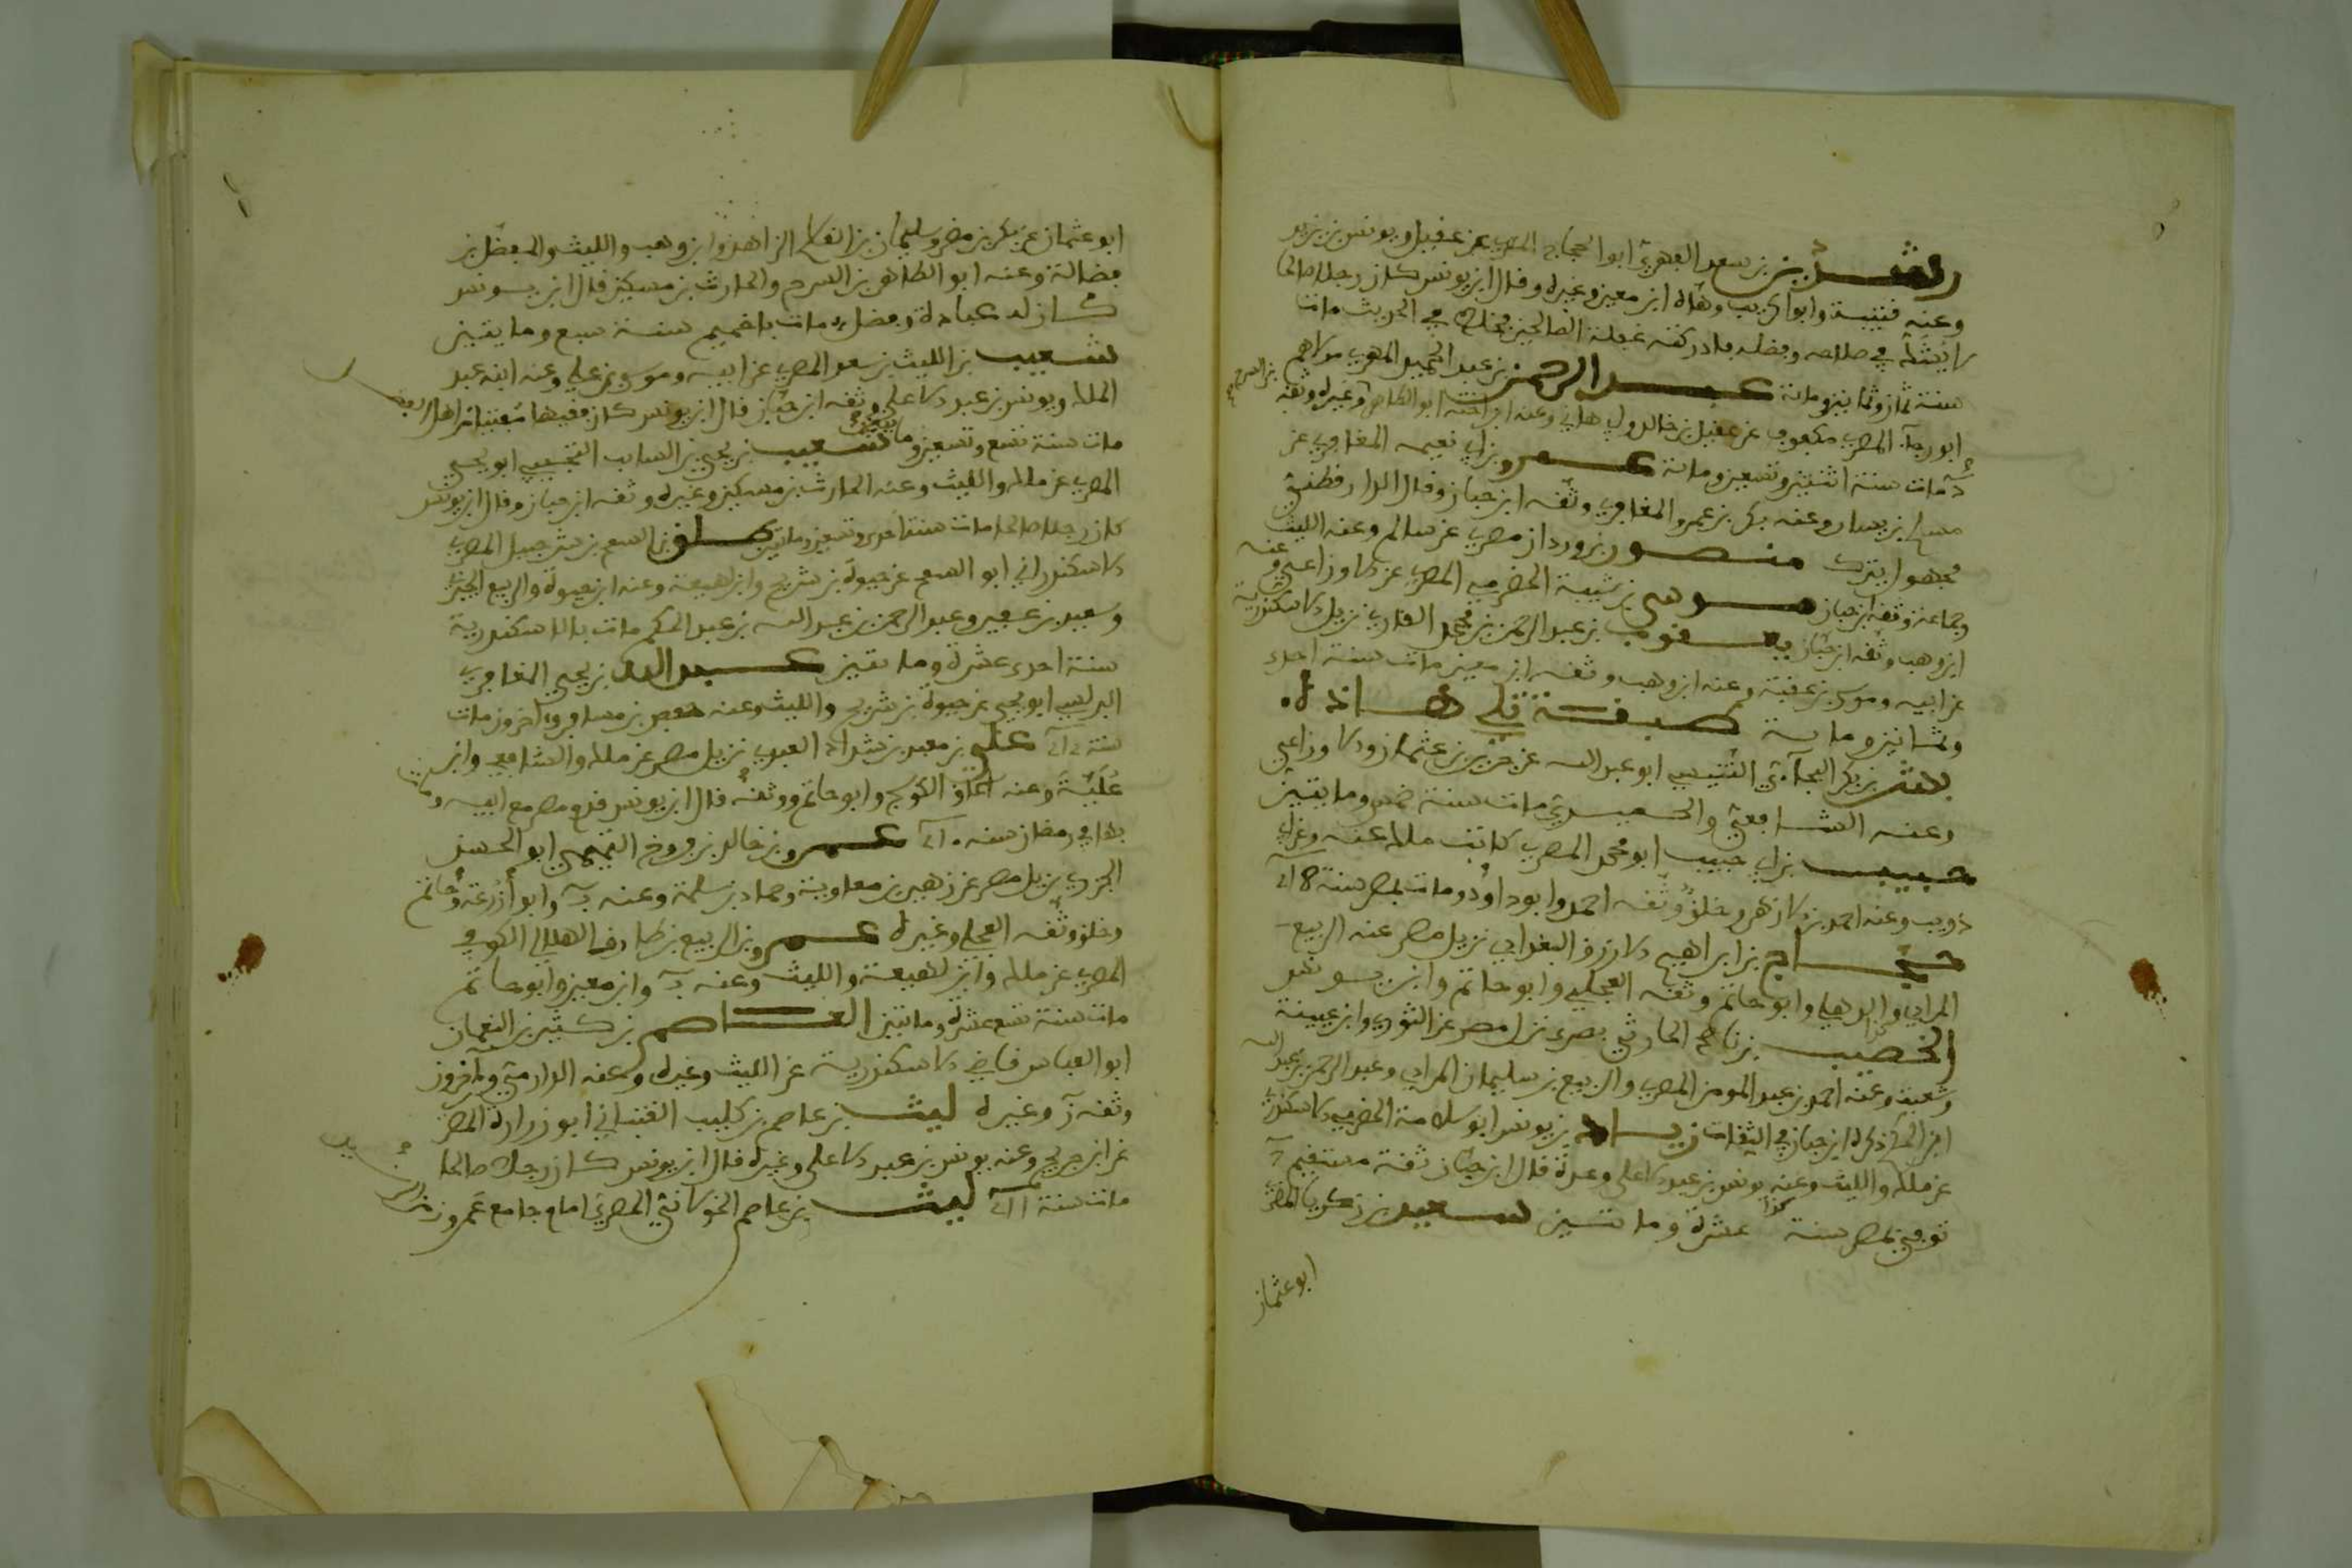 رشدين بن سعد المهري ابو الحجاج المصري عن عقيل ويونس بن يزيد
وعنه قتيبة وابو كريب وهاه ابن معين وغيره وقال ابن يونس كان رجلا صالحا
لا يشك في صلاحه وفضله فادركته غفلة الصالحين فخلط في الحديث مات
سنة ثمان وثمانين ومائة عبد الرحمن بن عبد الحميد المهري مولاهم
ابو رجاء المصري مكفوف عن عقيل بن خالد وابي هاني وعنه ابن اخته ابو الطاهر وغيره وثقه
بن السرح
د مات سنة اثنتين وتسعين ومائة عمرو بن ابي نعيمة المعافري عن
مسلم بن يسار وعنه بكر بن عمرو المعافري وثقه ابن حبان وقال الدارقطني
مجهول يترك منصور بن وردان مصري عن سالم وعنه الليث
وجماعة وثقه ابن حبان موسى بن شيبة الحضرمي المصري عن الاوزاعي وعنه
ابن وهب وثقه ابن حبان يعقوب بن عبد الرحمن بن محمد القاري نزيل الاسكندرية
عن ابيه وموسى بن عقبة وعنه ابن وهب وثقه ابن معين مات سنة احدى
وثمانين ومائة طبقة تلي هاذه
بشر بن بكر البجلي التنيسي ابو عبد الله عن حريز بن عثمان والاوزاعي
وعنه الشافعي والحميدي مات سنة خمس ومايتين
حبيب بن ابي حبيب ابو محمد المصري كاتب مالك عنه وعن ابن ابي
ذويب وعنه احمد بن الازهر وخلق وثقه احمد وابو داود ومات بمصر سنة
حجاج بن ابراهيم الازرق البغدادي نزيل مصر عنه الربيع
المرادي والذهلي وابو حاتم وثقه العجلي وابو حاتم وابن يونس
الخصيب بن ناصح الحارثي بصري نزل مصر عن الثوري وابن عيينة
وشعبة وعنه احمد بن عبد المومن المصري والربيع بن سليمان المرادي وعبد الرحمن بن عبد الله
ابن الحكم ذكره ابن حبان في الثقات زياد بن يونس ابو سلامة الحضرمي الاسكندري
عن مالك والليث وعنه يونس بن عبد الاعلى وعدة قال ابن حبان ثقة مستقيم
توفي بمصر سنة كذا عشرة ومائتين سعيد بن زكريا المصري
ابو عثمان
ابو عثمان عن بكر بن مضر وسليمان بن القاسم الزاهد وابن وهب والليث والمفضل بن
فضالة وعنه ابو الطاهر بن السرح والحارث بن مسكين قال ابن يونس
كان له عبادة وفضل مات باخميم سنة سبع ومايتين
شعيب بن الليث بن سعد المصري عن ابيه وموسى بن علي وعنه ابنه عبد
الملك ويونس بن عبد الاعلى وثقه ابن حبان قال ابن يونس كان فقيها مفتيا من اهل الفضل
مات سنة تسع وتسعين ومائة شعيب بن يحيى بن السائب التجيبي ابو يحيى
المصري عن مالك والليث وعنه الحارث بن مسكين وغيره وثقه ابن حبان وقال ابن يونس
كان رجلا صالحا مات سنة احدى عشرة ومائتين طلق بن السمح بن شرحبيل المصري
الاسكندراني ابو السمح عن حيوة بن شريح وابن لهيعة وعنه ابنه حيوة والربيع الجيزي
وسعيد بن عفير وعبد الرحمن بن عبد الله بن عبد الحكم مات بالاسكندرية
سنة احدى عشرة ومايتين عبد الله بن يحيى المعافري
البرلسي ابو يحيى عن حيوة بن شريح والليث وعنه جعفر بن مسافر واخرون مات
سنة علي بن معبد بن شداد العبدي نزيل مصر عن مالك والشافعي وابن
علية وعنه اسحاق الكوسج وابو حاتم ووثقه قال ابن يونس قدم مصر مع ابيه ومات
بها في رمضان سنة عمرو بن خالد بن فروخ التميمي ابو الحسن
الجزري نزيل مصر عن زهير بن معاوية وحماد بن سلمة وعنه وابو زرعة وحاتم
وخلق وثقه العجلي وغيره عمرو بن الربيع بن طارق الهلالي الكوفي
المصري عن مالك وابن لهيعة والليث وعنه وابن معين وابو حاتم
مات سنة تسع عشرة ومائتين القاسم بن كثير بن النعمان
ابو العباس قاضي الاسكندرية عن الليث وغيره وعنه الدارمي واخرون
وثقه وغيره ليث بن عاصم بن كليب القتباني ابو زرارة المصري
عن ابن جريج وعنه يونس بن عبد الاعلى وغيره قال ابن يونس كان رجلا صالحا
مات سنة ليث بن عاصم الخولاني المصري امام جامع عمرو